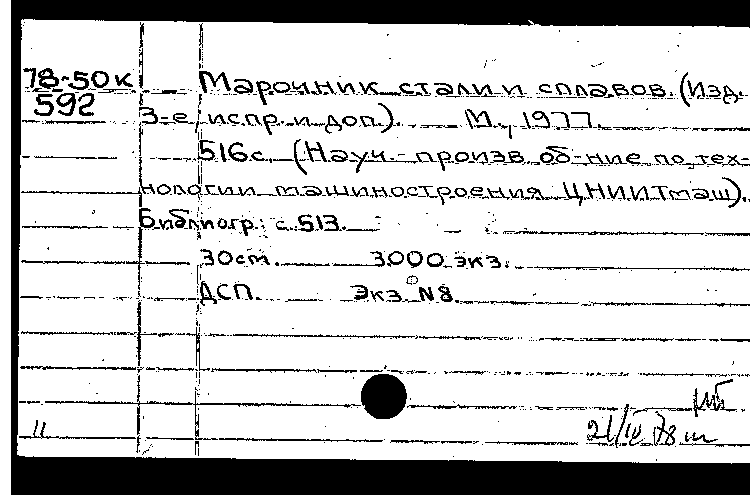 78-50к Марочник стали и сплавов. (Изд.
592 3-е испр. и доп.). М., 1977.
516с. (Науч.-произв. об-ние по тех-
нологии машиностроения ЦНИИТмаш).
Библиогр.: с. 513.
30см. 3000 экз.
ДСП. Экз. №8.
21/IV 78